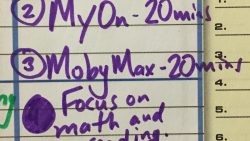 ② MyOn - 20 mins
③ MobyMax - 20 mins
Focus on
math and
1.
2.
3.
4.
5.
6.